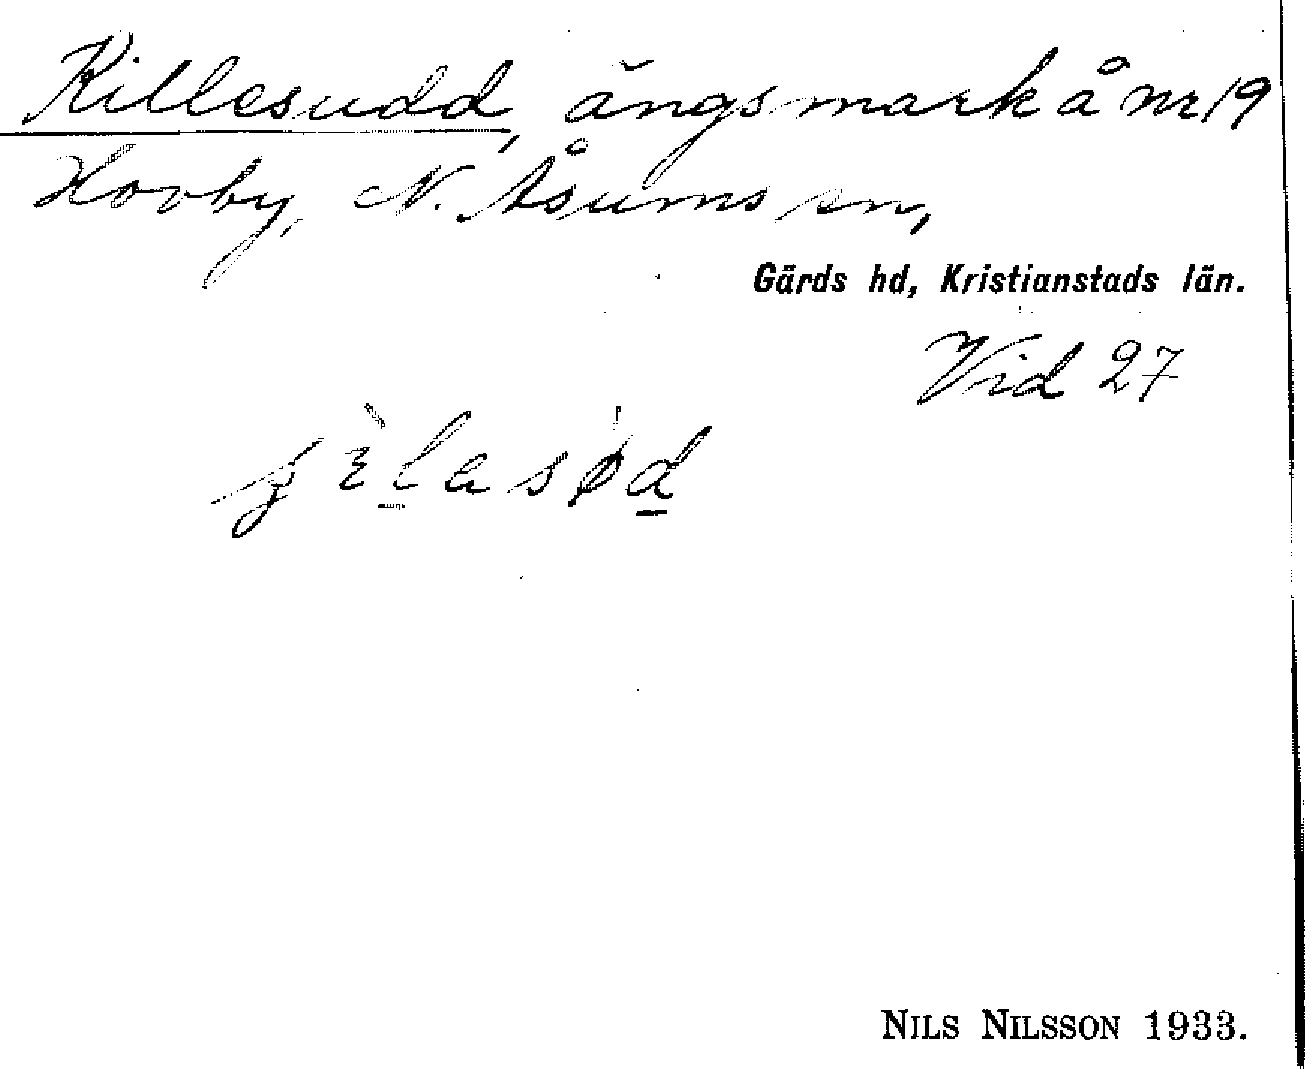 Killesudd, ängsmark å nr 19
Hovby, N. Åsums sn,
Gärds hd, Kristianstads län.
Vid 27
NILS NILSSON 1933.